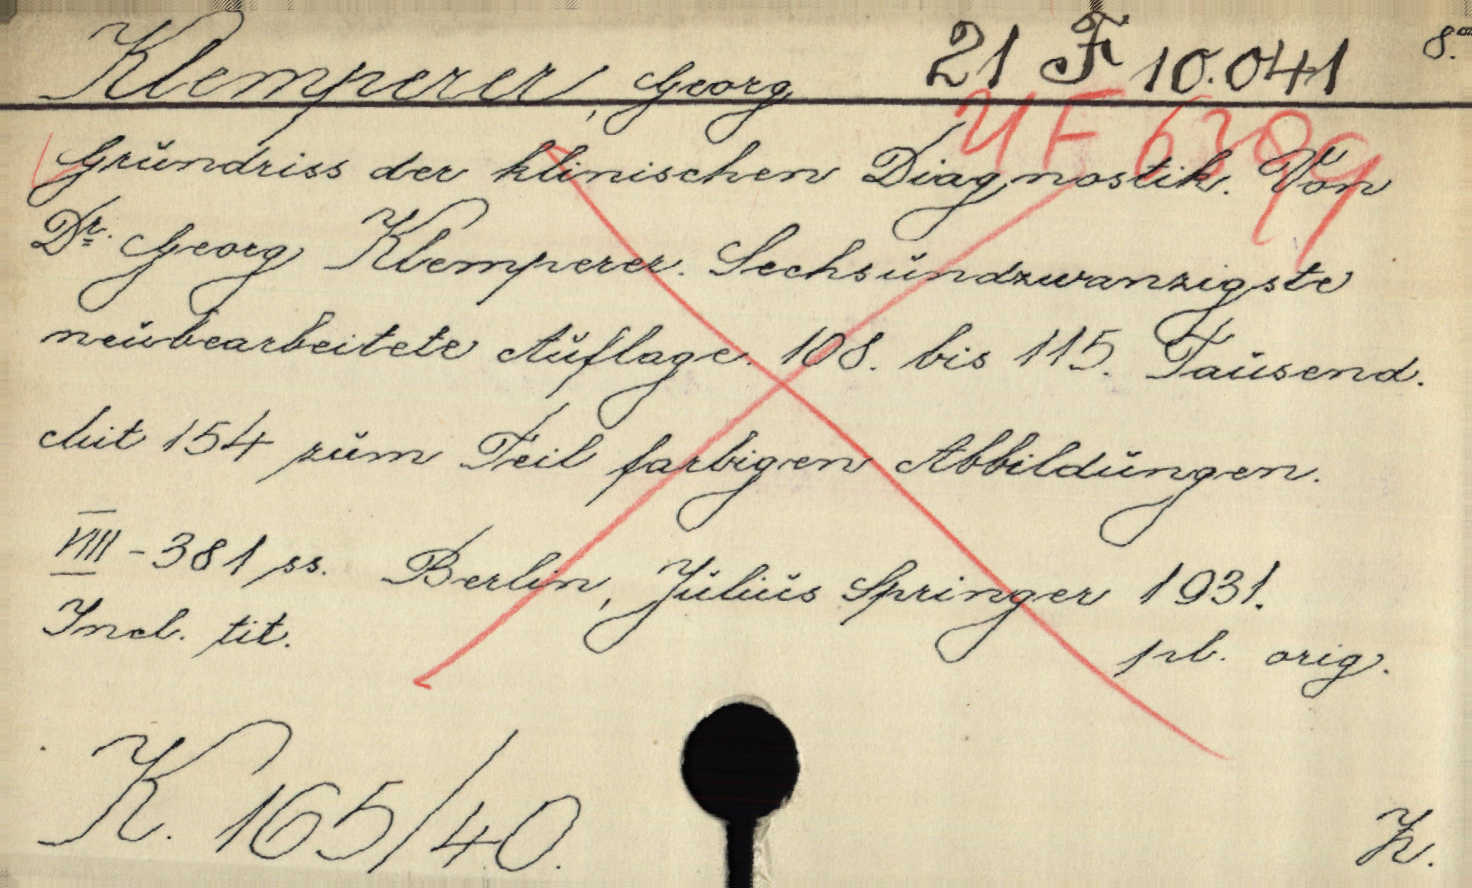 Klemperer, Georg 21 F 10.041 8.º
U F 63899
Grundriss der klinischen Diagnostik. Von
Dr. Georg Klemperer. Sechsundzwanzigste
neubearbeitete Auflage. 108. bis 115. Tausend.
Mit 154 zum Teil farbigen Abbildungen.
VIII - 381 ss. Berlin, Julius Springer 1931.
Incl. tit. pb. orig.
K. 165/40.